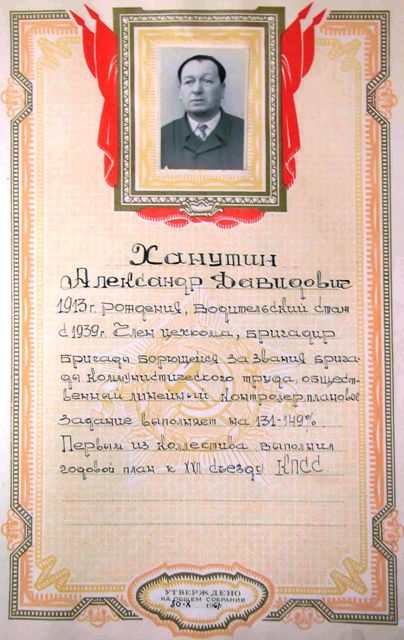 Ханутин
Александр Давидович
1913г. рождения, Водительский стаж
с 1939г. Член цехкома, бригадир
бригады борющейся за звания брига-
ды коммунистического труда, общест-
венный линейный контролер, плановое
задание выполняет на 131-149%
Первым из коллества выполнил
годовой план к XXII съезду КПСС
УТВЕРЖДЕНО
НА ОБЩЕМ СОБРАНИИ
30-X 1961